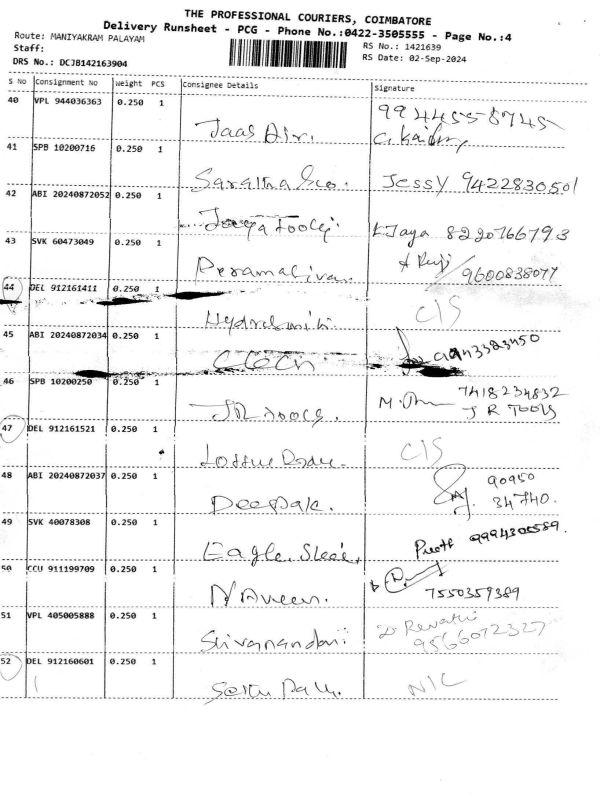 THE PROFESSIONAL COURIERS, COIMBATORE
Delivery Runsheet - PCG - Phone No.:0422-3505555 - Page No.:4
Route: MANIYAKRAM PALAYAM
RS No.: 1421639
Staff:
RS Date: 02-Sep-2024
DRS No.: DCJB142163904
S No Consignment No Weight PCS Consignee Details Signature
40 VPL 944036363 0.250 1
99 44558745
Jaas Air.
41 SPB 10200716 0.250 1
Saraltha Jessy 9422830501
42 ABI 20240872052 0.250 1
Jaya Tools K Jaya 8220766793
43 SVK 60473049 0.250 1
Peramasivan 9600838077
44 DEL 912161411 0.250 1
CIS
45 ABI 20240872034 0.250 1
9943383450
46 SPB 10200250 0.250 1
7418234832
JR Tools. J R Tools
47 DEL 912161521 0.250 1
CIS
48 ABI 20240872037 0.250 1
90950
Deepak. 34740.
49 SVK 40078308 0.250 1
Eagle Steel. 9994305589.
50 CCU 911199709 0.250 1
Naveen. 7550359389
51 VPL 405005888 0.250 1
Revathi
Sivanandani 9566072327
52 DEL 912160601 0.250 1
N/C